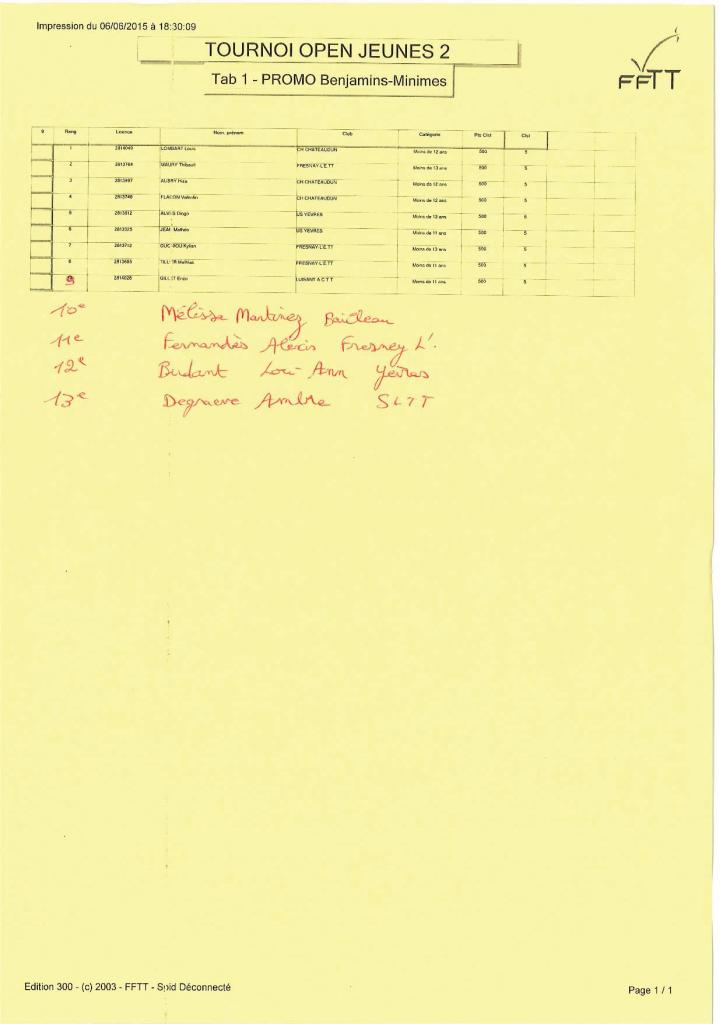 Impression du 06/06/2015 à 18:30:09
TOURNOI OPEN JEUNES 2
Tab 1 - PROMO Benjamins-Minimes
FFTT
Rang Licence Nom, prénom Club Catégorie Pts Clst Clst
1 LOMBART Louis CH CHATEAUDUN Moins de 12 ans 500 5
2 MAURY Thibault FRESNAY-L'E.TT Moins de 13 ans 500 5
3 AUBRY CH CHATEAUDUN Moins de 12 ans 500 5
4 FLACON Valentin CH CHATEAUDUN Moins de 12 ans 500 5
5 Diogo US YEVRES Moins de 13 ans 500 5
6 Mathéo US YEVRES Moins de 11 ans 500 5
7 Kylian FRESNAY-L'E.TT Moins de 13 ans 500 5
8 Mathias FRESNAY-L'E.TT Moins de 11 ans 500 5
9 Enzo LUISANT A C T T Moins de 11 ans 500 5
10e Mélissa Martinez Bailleau
11e Fernandès Alexis Fresney L'.
12e Budant Lou-Ann Yèvres
13e Degraeve Ambre SLTT
Edition 300 - (c) 2003 - FFTT - Spid Déconnecté
Page 1 / 1